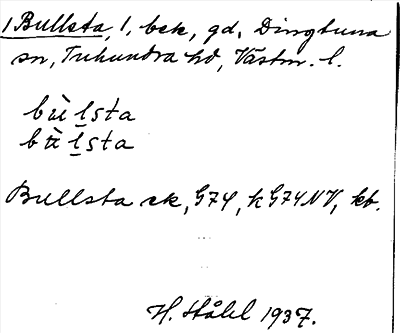 1 Bullsta, 1, bek, gd, Dingtuna
sn, Tuhundra hd, Västm. l.
bùlsta
bùlsta
Bullsta ek, G74, h G74NV, kb.
H. Ståhl 1937.